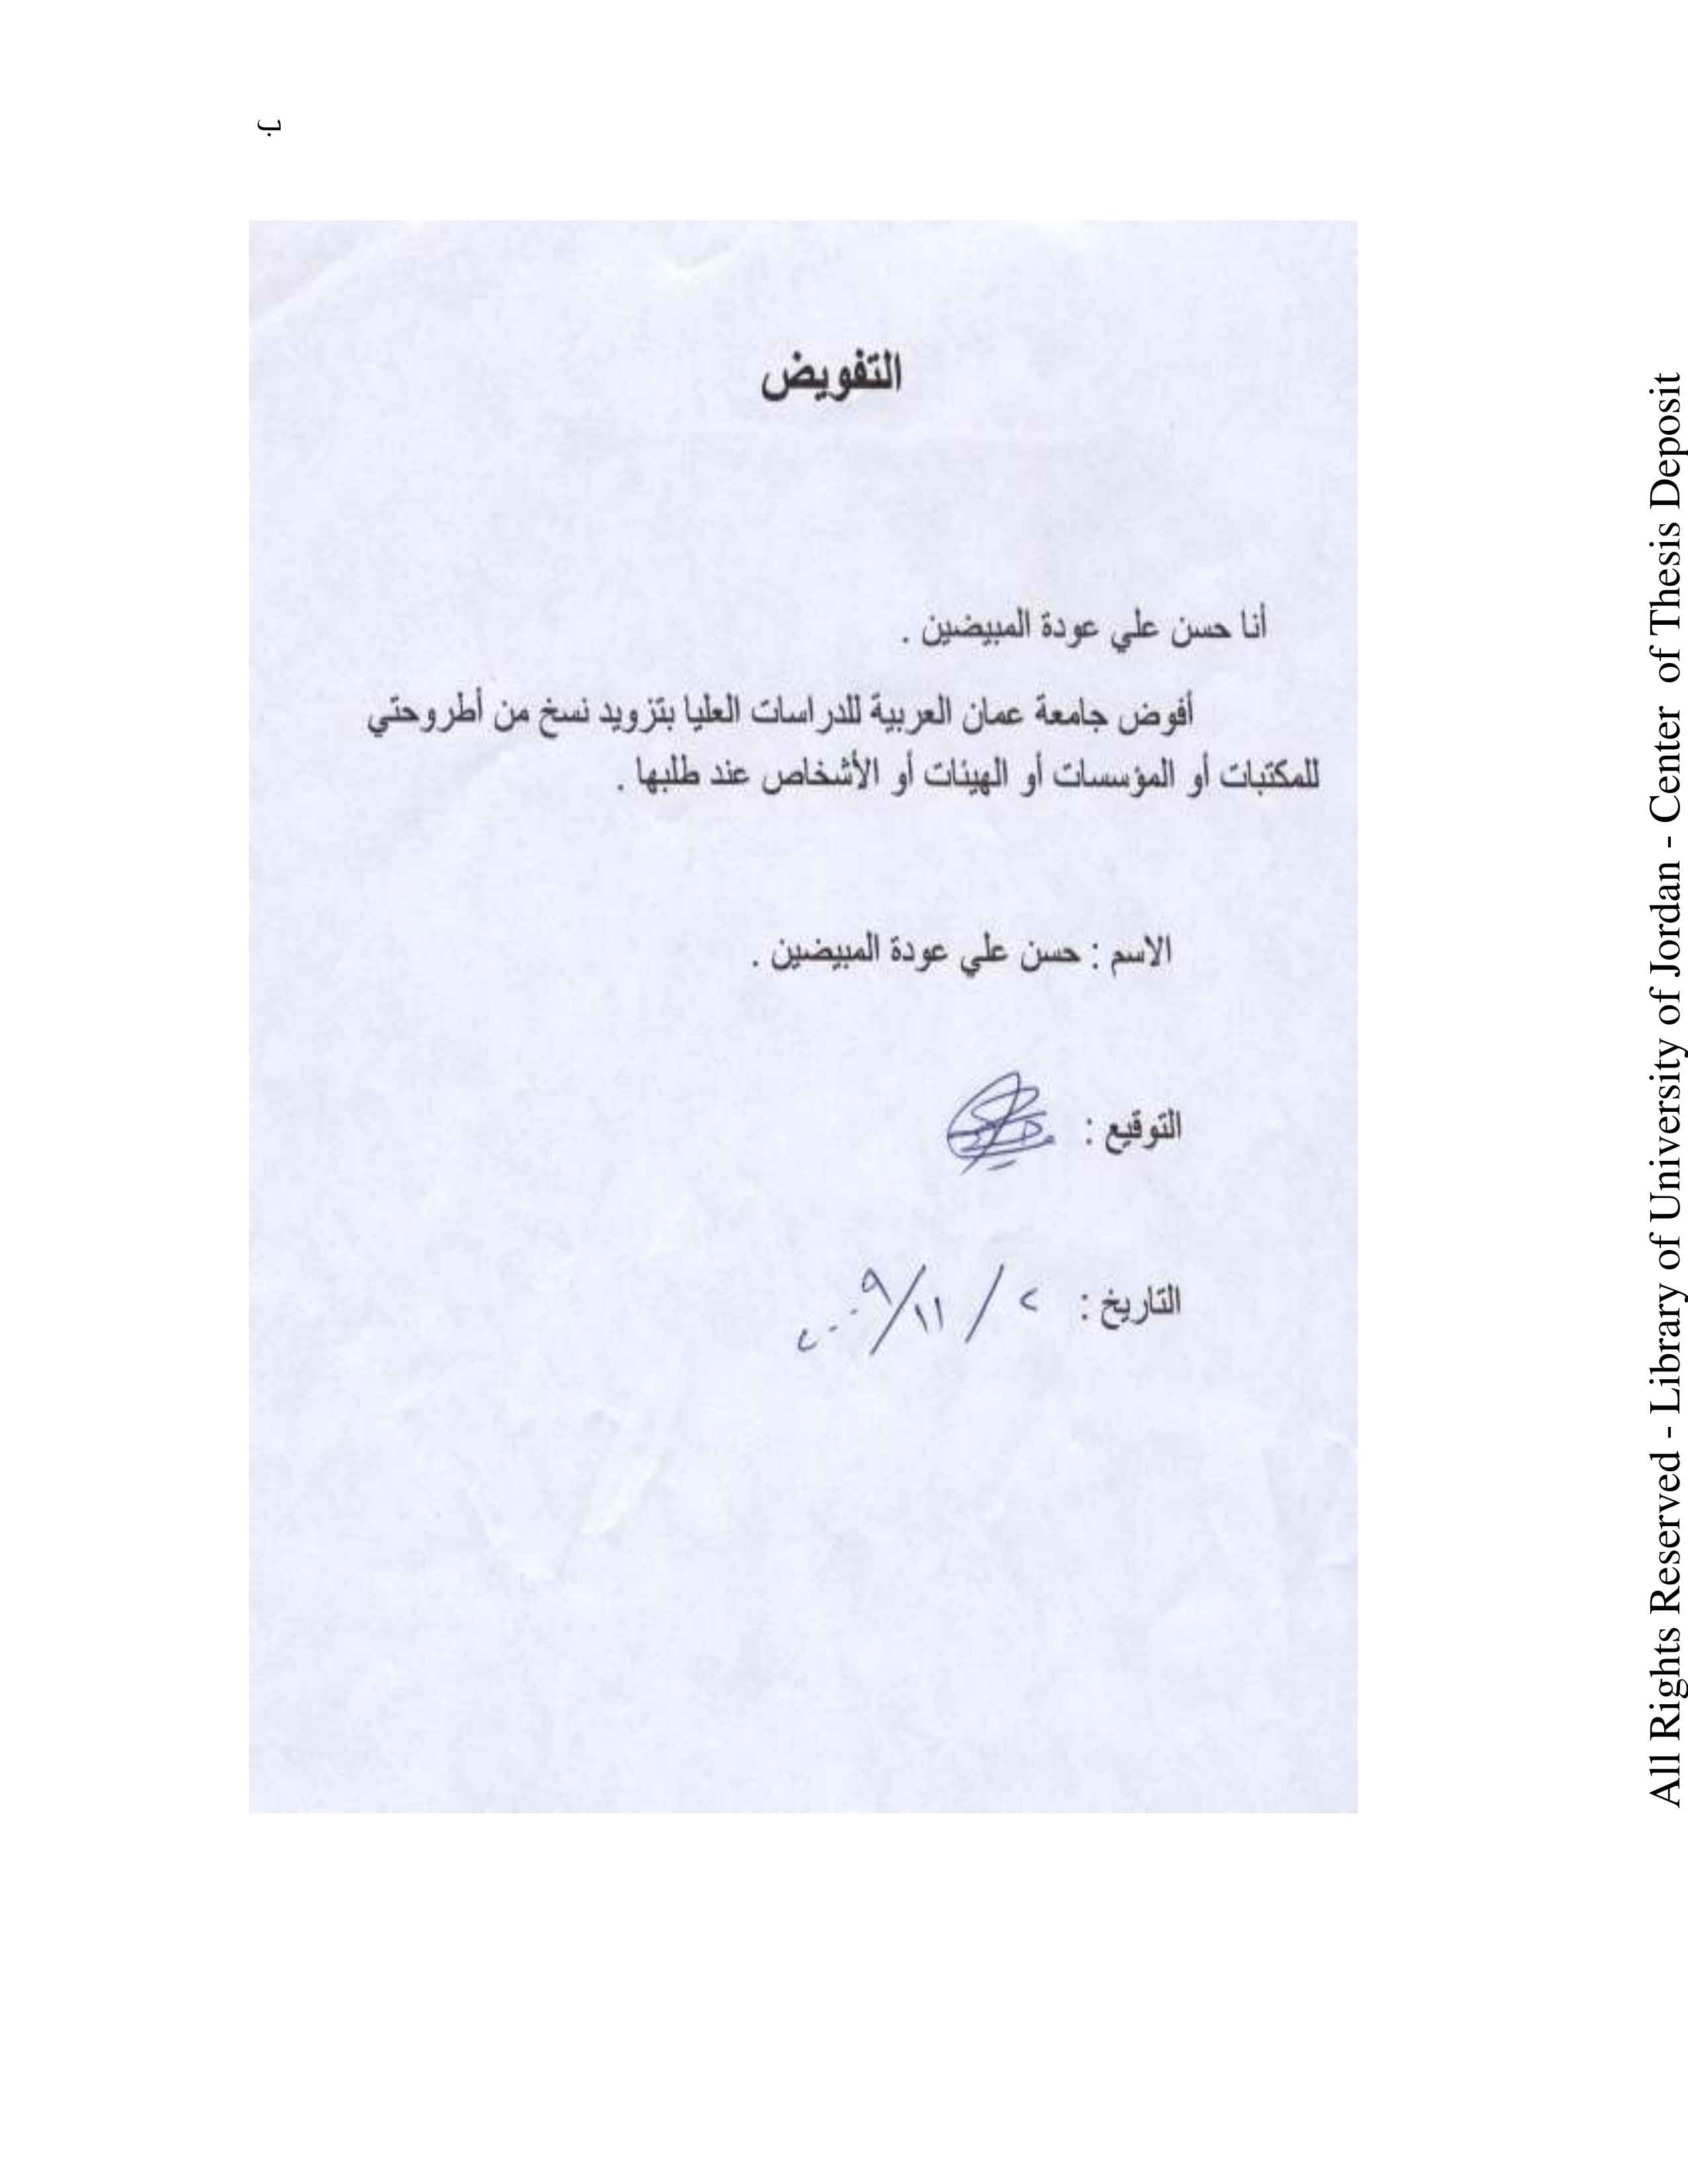 ب
التفويض
أنا حسن علي عودة المبيضين .
أفوض جامعة عمان العربية للدراسات العليا بتزويد نسخ من أطروحتي
للمكتبات أو المؤسسات أو الهيئات أو الأشخاص عند طلبها .
الاسم : حسن علي عودة المبيضين .
التوقيع :
التاريخ : ٢ / ١١/ ٢٠٠٩
All Rights Reserved - Library of University of Jordan - Center of Thesis Deposit